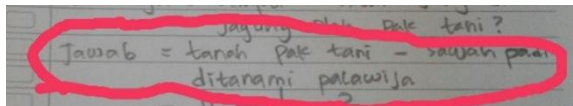 jagung oleh Pak tani?
Jawab = tanah Pak tani - sawah padi
ditanami palawija
?